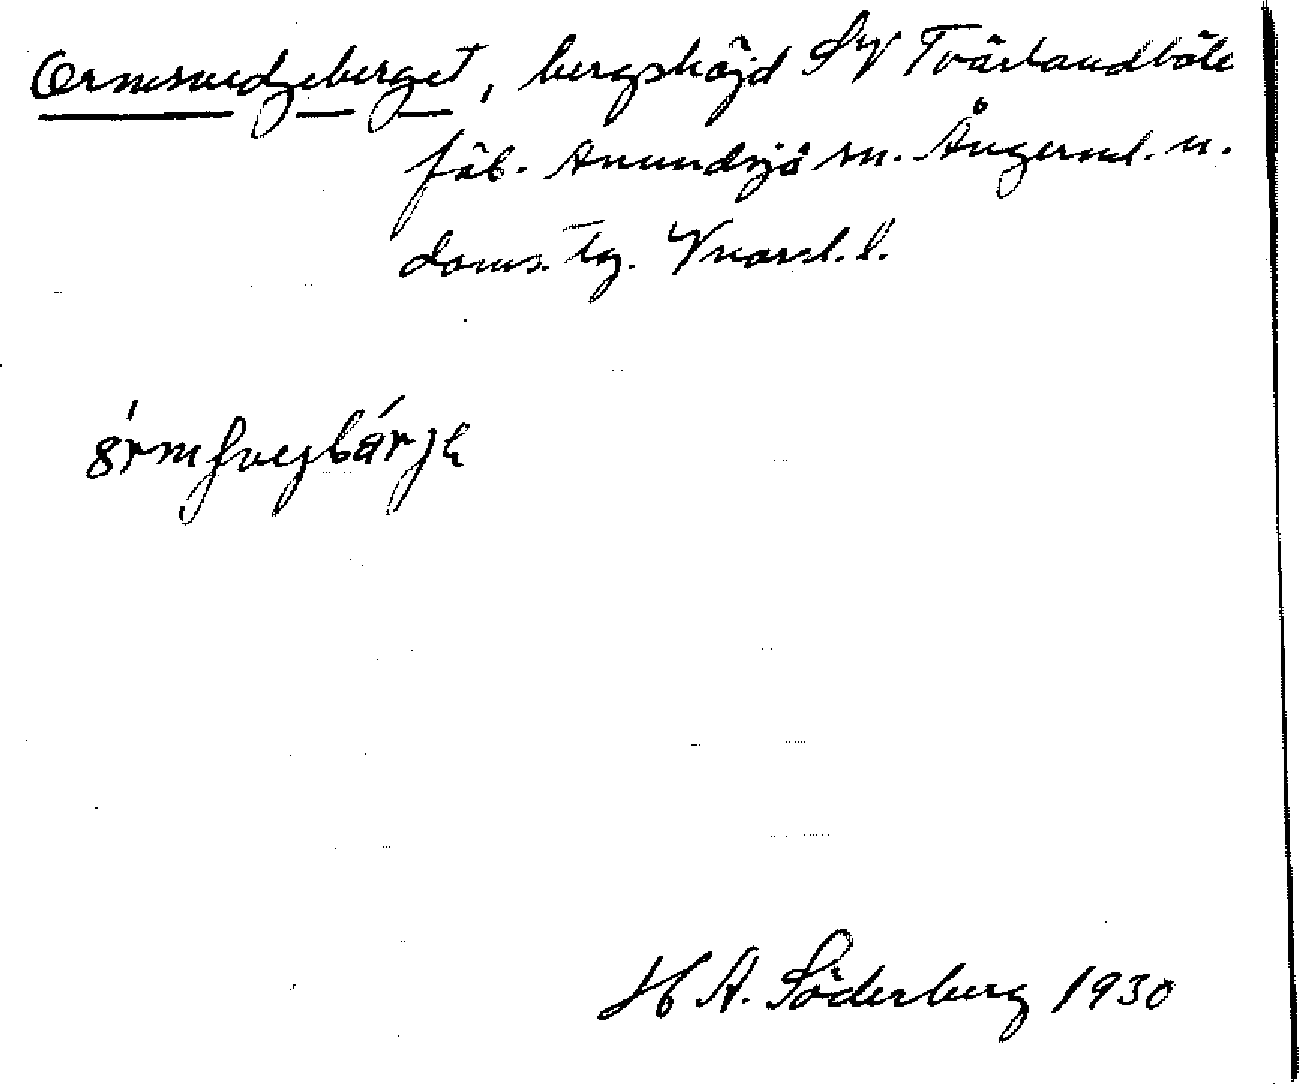 Ormsvedjeberget, bergshöjd SV Tvärlandböle
fäb. Anundsjö sn. Ångerml. n.
doms. tg. Vnorrl. l.
H A. Söderberg 1930